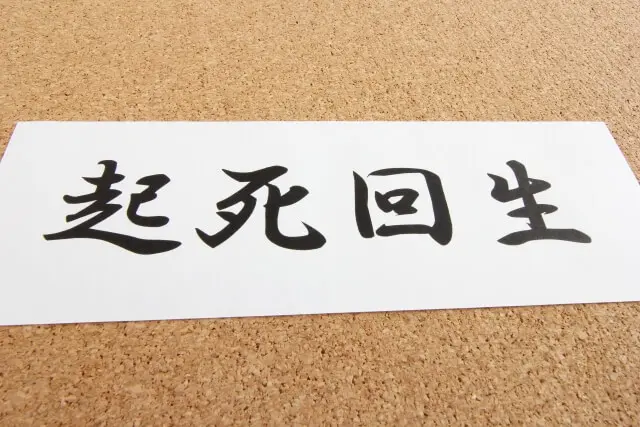 起死回生